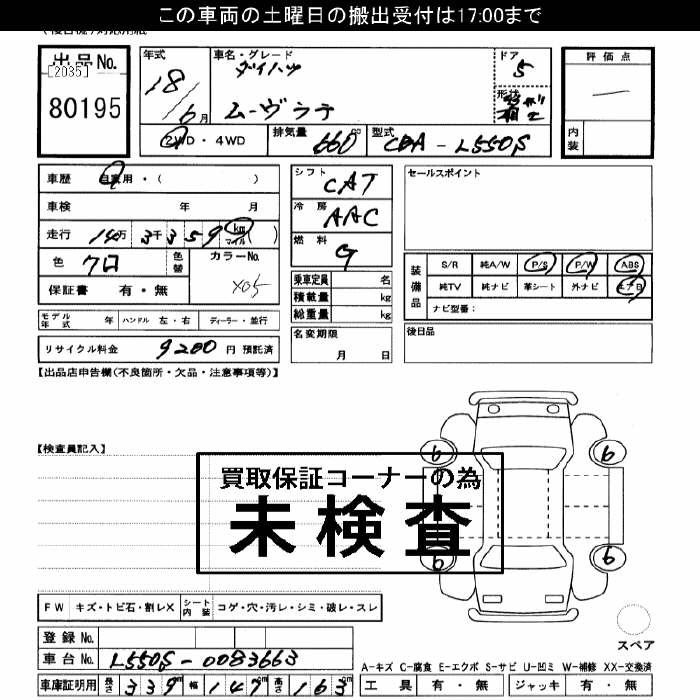 この車両の土曜日の搬出受付は17:00まで
出品No.
[2035]
80195
年式
18/6月
車名・グレード
ダイハツ
ムーヴラテ
ドア
5
形状
評価点
内装
2WD・4WD
排気量 660 cc
型式 CBA-L550S
車歴 自家用・( )
車検 年 月
走行 14万 3千359 km マイル ( )
色 クロ
色替
カラーNo.
X05
保証書 有・無
シフト CAT
冷房 AAC
燃料 G
乗車定員 名
積載量 kg
総重量 kg
セールスポイント
装備品
S/R 純A/W P/S P/W ABS
純TV 純ナビ 革シート 外ナビ エアB
ナビ型番:
モデル年式 年 ハンドル 左・右 ディーラー・並行
リサイクル料金 9200 円 預託済
名変期限
月 日
後日品
【出品店申告欄(不良箇所・欠品・注意事項等)】
【検査員記入】
6 6
6 6
買取保証コーナーの為
未検査
FW キズ・トビ石・割レX シート内装 コゲ・穴・汚レ・シミ・破レ・スレ
登録No.
車台No. L550S-0083663
スペア
A-キズ C-腐食 E-エクボ S-サビ U-凹ミ W-補修 XX-交換済
車庫証明用 長さ 339 cm 幅 147 cm 高さ 163 cm
工具 有・無 ジャッキ 有・無